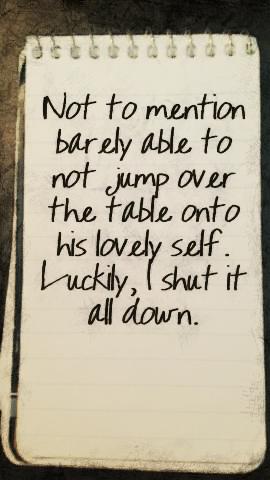 Not to mention
barely able to
not jump over
the table onto
his lovely self.
Luckily, I shut it
all down.